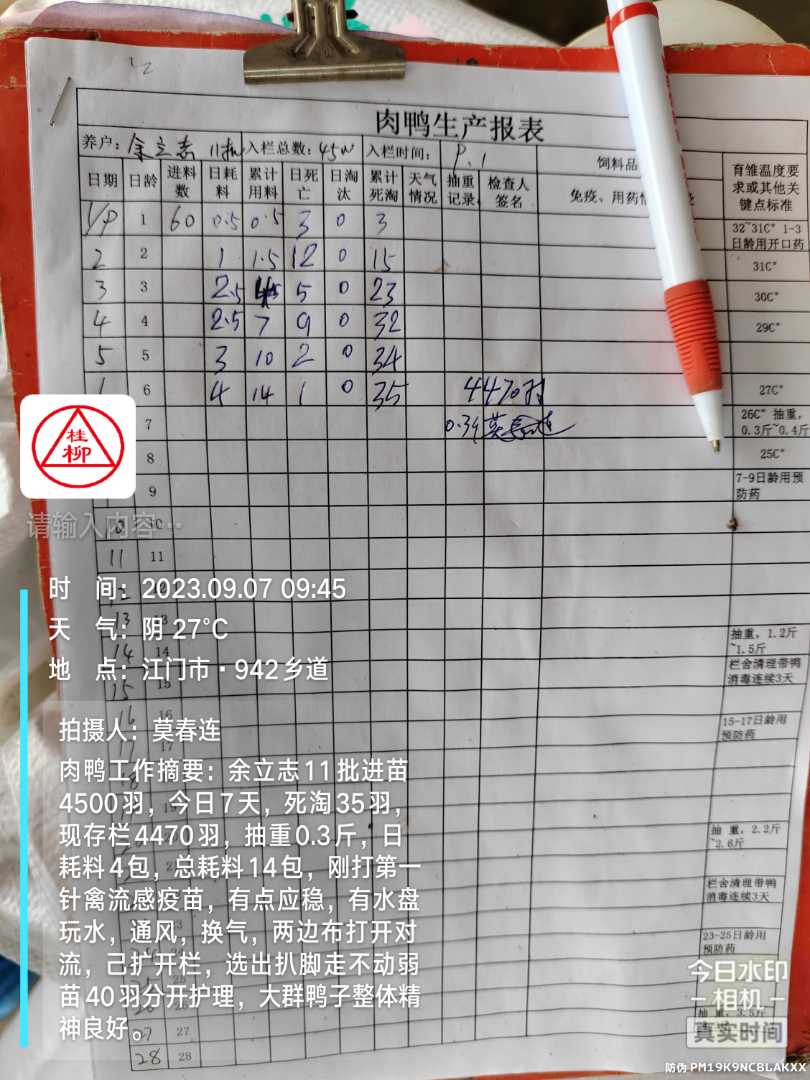 肉鸭生产报表
养户: 余立志 11批 入栏总数: 45 入栏时间: 9.1 饲料品
日期 日龄 进料数 日耗料 累计用料 日死亡 日淘汰 累计死淘 天气情况 抽重记录 检查人签名 免疫、用药情 育雏温度要求或其他关键点标准
1 60 0.5 0.5 3 0 3 32~31C° 1-3日龄用开口药
2 2 1 1.5 12 0 15 31C°
3 3 2.5 5 0 23 30C°
4 4 2.5 7 9 0 32 29C°
5 5 3 10 2 0 34
6 4 14 1 0 35 4470 27C°
7 0.3 莫春连 26C° 抽重, 0.3斤~0.4斤
8 25C°
9 7-9日龄用预防药
桂柳
请输入内容…
10
11 11
时 间: 2023.09.07 09:45
天 气: 阴 27°C
13
14 14 抽重, 1.2斤~1.5斤
地 点: 江门市·942乡道
15 15 栏舍清理带鸭消毒连续3天
16 16 15-17日龄用预防药
拍摄人: 莫春连
17
肉鸭工作摘要: 余立志11批进苗
4500羽, 今日7天, 死淘35羽,
现存栏4470羽, 抽重0.3斤, 日
耗料4包, 总耗料14包, 刚打第一
针禽流感疫苗, 有点应稳, 有水盘
玩水, 通风, 换气, 两边布打开对
流, 己扩开栏, 选出扒脚走不动弱
苗40羽分开护理, 大群鸭子整体精
神良好。
抽 重, 2.2斤~2.6斤
栏舍清理带鸭消毒连续3天
23-25日龄用预防药
抽 重, 3.5斤
27 27
28 28
今日水印
相机
真实时间
防伪 PM19K9NCBLAKXX